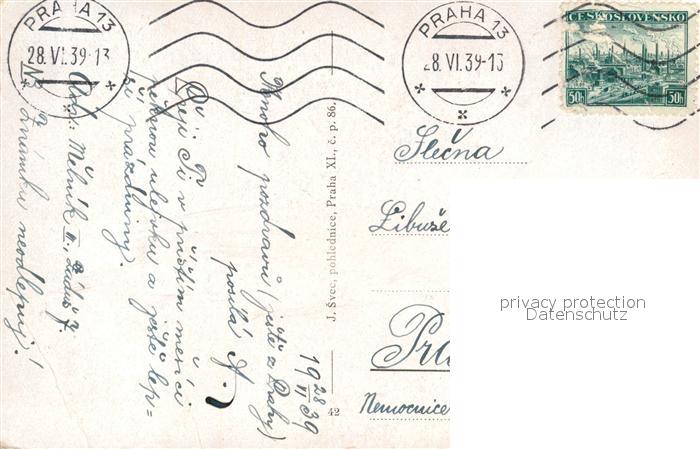 PRAHA 13
28. VI. 39-13
PRAHA 13
28. VI. 39-13
ČESKO-SLOVENSKO
50h 50h
19 28/VI 39
Mnoho pozdravů (ještě z Prahy)
posílá A.
Přeji Ti v příštím měsíci
pěknou ulejvku a ještě lep-
ší prázdniny.
Adr.: Mělník II.,
Známku neodlepuj!
J. Švec, pohlednice, Praha XI., č. p. 86.
42
Slečna
Libuše
Pra
Nemocnice
privacy protection
Datenschutz